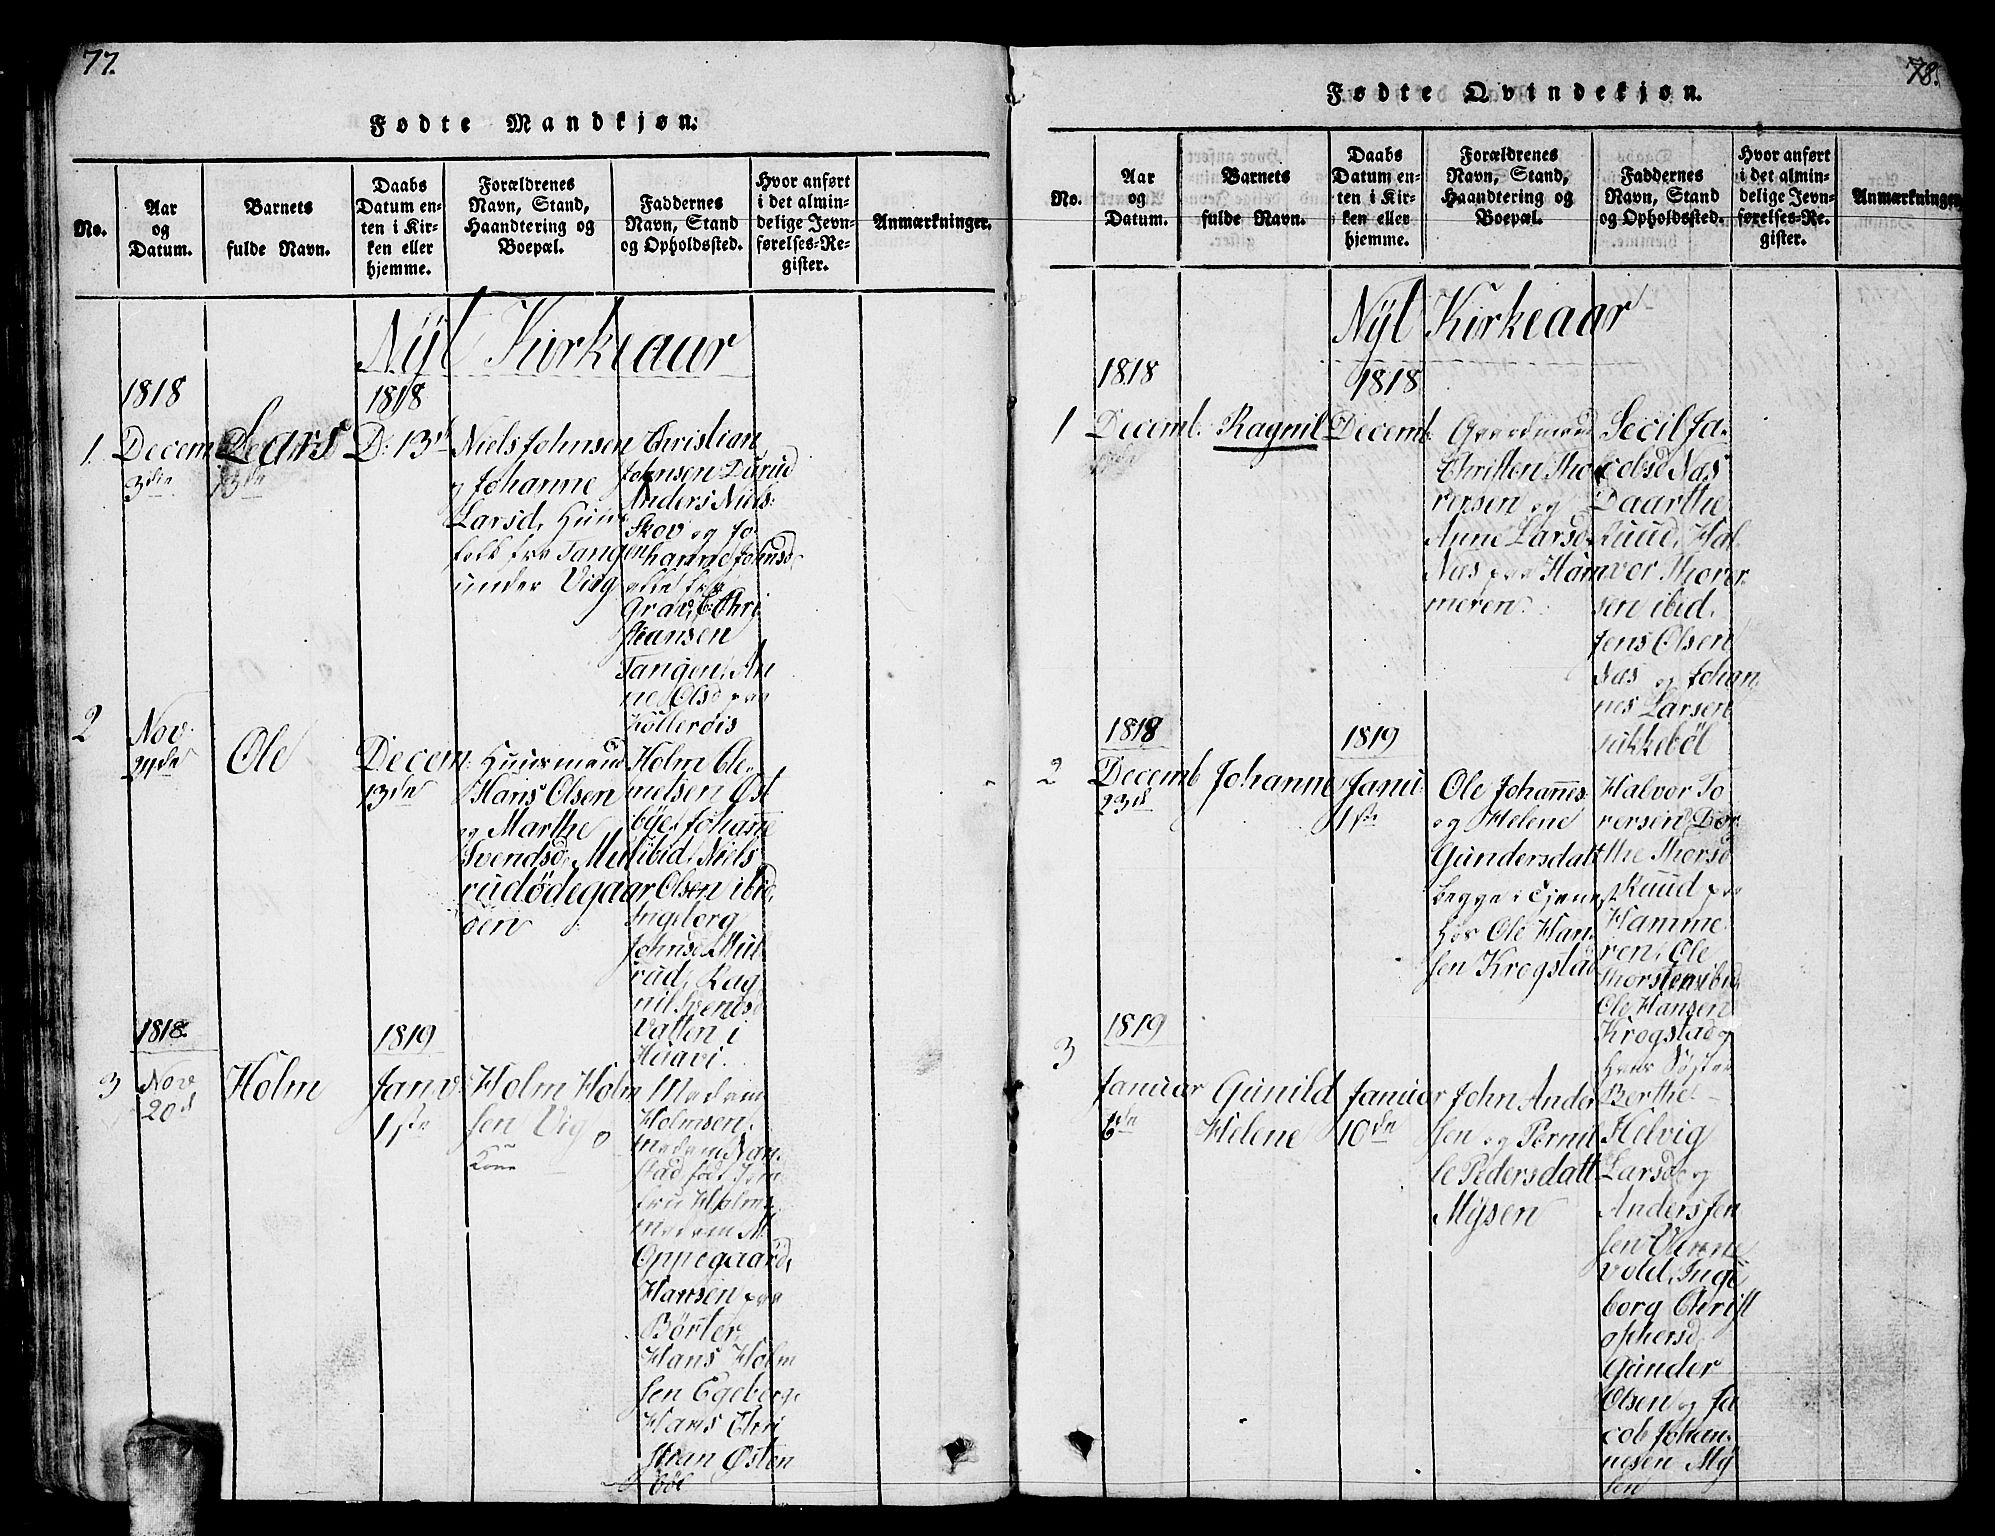 77.
Fødte Mandkjøn.
No.
Aar
og
Datum.
Barnets
fulde Navn.
Daabs
Datum en-
ten i Kir-
ken eller
hjemme.
Forældrenes
Navn, Stand,
Haandtering og
Boepæl.
Faddernes
Navn, Stand
og Opholdssted.
Hvor anført
i det almin-
delige Jevn-
førelses-Re-
gister.
Anmærkninger.
Nyt Kirkeaar
1818
1818
1.
Decem
3die
Lars
D: 13de
Niels Johnsen
og Johanne
Larsd. Huus
folk fra Tangen
under Viig
Christian
Johnsen Durud
Anders Niels:
Skov og Jo
hanne Johnsd.
Grav, Chri
stiansen
Tangen, An
ne Olsd paa
2
Nov.
Ole
Decem:
13de
Huusmand
Hans Olsen
og Marthe
Svendsd. Mul
rudødegaar
den
Holm Cle
metsen Øst
bye, Johanne
ibid, Niels
Olsen ibid,
Ingeborg
Johnsd. Mul
rud, Rag
nil Svends
Vatten i
1818.
1819
3
Nov
20d
Holm
Janv:
1ste
Holm Holm
sen Vig
Kone
Madam
Holmsen,
Madam Nan
stad født Jom
fru Holm
madam M.
Oppegaard,
Hansen paa
Børter,
Hans Holm
sen Egeberg
Hans Chri
stian Østen
bøl
78.
Fødte Qvindekjøn.
No.
Aar
og
Datum.
Barnets
fulde Navn.
Daabs
Datum en-
ten i Kir-
ken eller
hjemme.
Forældrenes
Navn, Stand,
Haandtering og
Boepæl.
Faddernes
Navn, Stand
og Opholdssted.
Hvor anført
i det almin-
delige Jevn-
førelses-Re-
gister.
Anmærkninger
Nyt Kirkeaar
1818
1818
1
Decemb.
Ragnil
Decemb.
Gaardmand
Christen Tho
rersen og
Anne Larsd.
Næs paa Ham
meren.
Secil Ja
cobsd Næs
Daarthe
Ruud, Hal
vor Thorer
sen ibid.
Jens Olsen
Næs og Johan
nes Larsen
1818
1819
2
Decemb
23d
Johanne
Janu
1ste
Ole Johannes
og Helene
Gundersdatt
begge i Tjenest
hos Ole Han
sen Krogstad
Halvor To
rersen Dor
the Thorsd
Ruud paa
Hamme
ren, Ole
Thorsten ibid,
Ole Hansen
Krogstad og
hans Søster
1819
3
Januar
6de
Gunild
Helene
Januar
10de
John Ander
sen og Pernil
le Pedersdatt
Mysen
Berthel
Helvig
Larsd og
Anders Jen
sen
vold, Inge
borg Christ
ophersd,
Gunder
Olsen og Ja
cob Johan
nesen My
sen